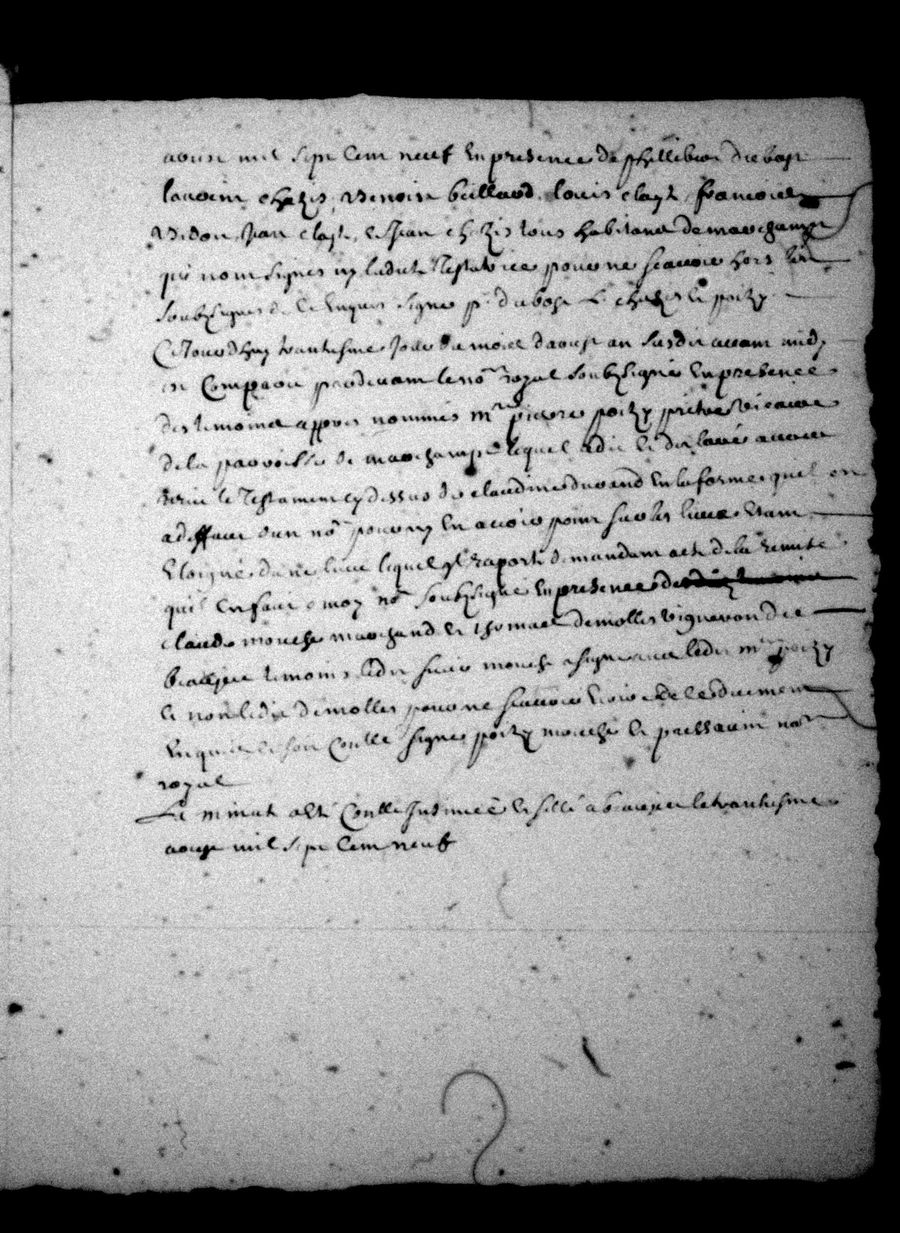 aoust mil sept cent neuf en presence de phillibert dubost
laurent chezis, Benoist buillard, louis clayt, francois
Bidon, Jean clayt, et Jean chezis tous habitans de marchampt
qui n'ont signes ny ladite Testatrice pour ne scavoir hors les
soubsignes de ce enquis signe p. dubost L. chezis et poizy
Cejourdhuy trantiesme Jour du mois d'aoust an susdit avant midy
est Comparu pardevant le no.re royal soubzsigné en presence
des temoins appres nommés m.re pierre poizy prêtre vicaire
de la parroisse de marchampt lequel a dit et declaré avoir
receu le Testament cy dessus de claudine durand en la forme quel est
a deffaut d'un no.re pour n'y en avoir point sur les lieux estant
Eloigné d'une lieue lequel il raporte demandant acte de la remise
qu'il en fait a moy no.re soubzsigné en presence de
claude mouche marchand et thomas demolles vigneron de
beaujeu temoins ledit sieur mouche a signé avec ledit m.re poizy
et non ledit demolles pour ne scavoir escrire de ce duement
enquis et soit Conllé signe poizy mouche et pressavin no.re
royal
La minute aété Conllé Insinuée et sellé a beaujeu le trantiesme
aoust mil sept cent neuf